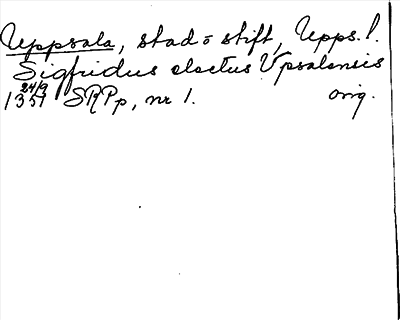 Uppsala, stad o stift, Upps. l.
Sigfridus electus Vpsalensis
24/9
1351 SRPp, nr 1. orig.